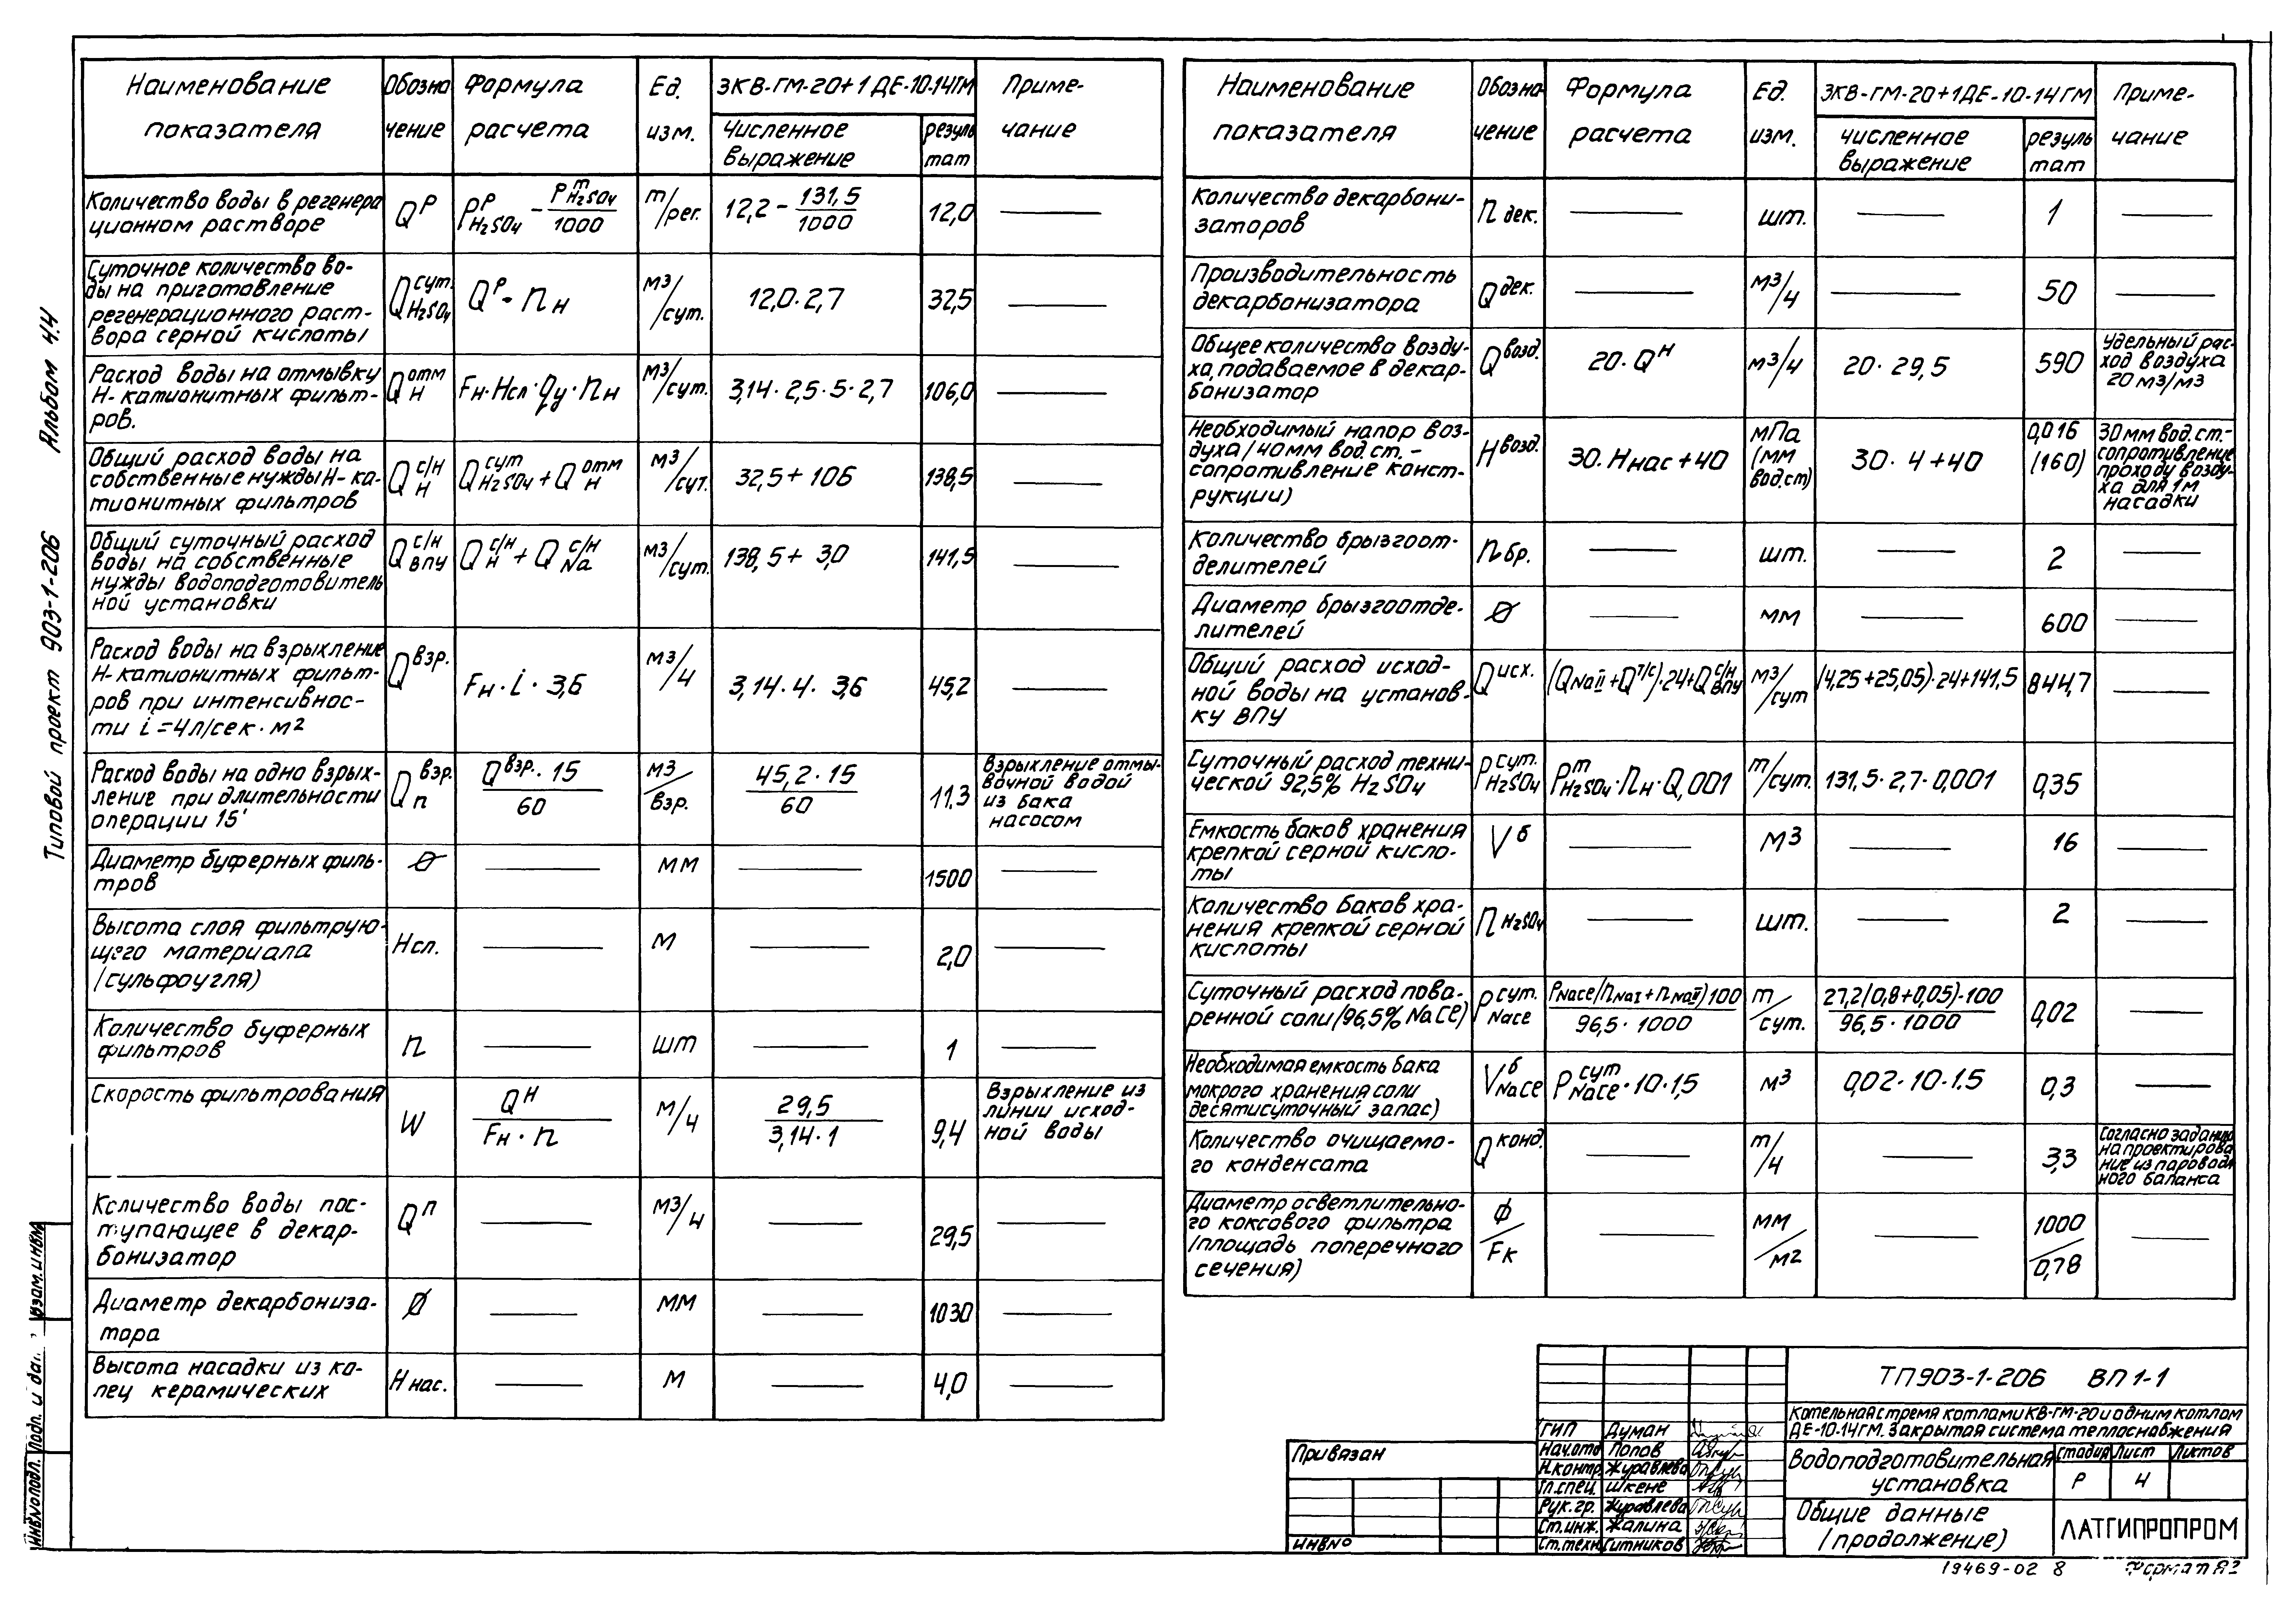 Наименование показателя | Обозна чение | Формула расчета | Ед. изм. | 3КВ-ГМ-20+1ДЕ-10-14ГМ | Приме- чание
Численное выражение | резуль тат
Количество воды в регенера | Q^р | P^р H₂SO₄ − P^т H₂SO₄ / 1000 | т/рег. | 12,2 − 131,5/1000 | 12,0 | —
ционном растворе
Суточное количество во-
ды на приготавление
регенерационного раст-
вора серной кислоты | Q^сут. H₂SO₄ | Q^р · nн | м3/сут. | 12,0·2,7 | 32,5 | —
Расход воды на отмывку
Н-катионитных фильт-
ров. | Q^отм Н | Fн·Нсл·qу·nн | м3/сут. | 3,14·2,5·5·2,7 | 106,0 | —
Общий расход воды на
собственные нужды Н-ка-
тионитных фильтров | Q^с/н Н | Q^сут H₂SO₄ + Q^отм Н | м3/сут. | 32,5+106 | 138,5 | —
Общий суточный расход
воды на собственные
нужды водоподготовитель
ной установки | Q^с/н ВПУ | Q^с/н Н + Q^с/н Na | м3/сут. | 138,5+ 3,0 | 141,5 | —
Расход воды на взрыхление
Н-катионитных фильт-
ров при интенсивнос-
ти i=4л/сек·м2 | Q^взр. | Fн·i·3,6 | м3/ч | 3,14·4·3,6 | 45,2 | —
Расход воды на одно взрых-
ление при длительности
операции 15' | Q^взр. п | Q^взр.·15 / 60 | м3/взр. | 45,2·15 / 60 | 11,3 | Взрыхление отмы-
вочной водой
из бака
насосом
Диаметр буферных филь-
тров | Ø | — | мм | — | 1500 | —
Высота слоя фильтрую-
щего материала
/сульфоугля) | Нсл. | — | м | — | 2,0 | —
Количество буферных
фильтров | n | — | шт | — | 1 | —
Скорость фильтрования | W | Q^Н / Fн·n | м/ч | 29,5 / 3,14·1 | 9,4 | Взрыхление из
линии исход-
ной воды
Количество воды пос-
тупающее в декар-
бонизатор | Q^п | — | м3/ч | — | 29,5 | —
Диаметр декарбониза-
тора | Ø | — | мм | — | 1030 | —
Высота насадки из ко-
лец керамических | Ннас. | — | м | — | 4,0 | —
Наименование показателя | Обозна- чение | Формула расчета | Ед. изм. | 3КВ-ГМ-20+1ДЕ-10-14ГМ | Приме- чание
численное выражение | резуль тат
Количество декарбони-
заторов | n дек. | — | шт. | — | 1 | —
Производительность
декарбонизатора | Q^дек. | — | м3/ч | — | 50 | —
Общее количества возду-
ха, подаваемое в декар-
бонизатор | Q^возд. | 20·Q^Н | м3/ч | 20·29,5 | 590 | Удельный рас-
ход воздуха
20 м3/м3
Необходимый напор воз-
духа /40мм вод.ст.-
сопротивление конст-
рукции) | Н^возд. | 30·Ннас+40 | мПа (мм вод.ст) | 30·4+40 | 0,016 (160) | 30мм вод.ст.-
сопротивление
проходу возду-
ха для 1м
насадки
Количество брызгоот-
делителей | nбр. | — | шт. | — | 2 | —
Диаметр брызгоотде-
лителей | Ø | — | мм | — | 600
Общий расход исход-
ной воды на установ-
ку ВПУ | Q^исх. | (QNaII+Q^т/с)·24+Q^с/н ВПУ | м3/сут | (4,25+25,05)·24+141,5 | 844,7 | —
Суточный расход техни-
ческой 92,5% H₂SO₄ | P^сут. H₂SO₄ | P^т H₂SO₄·nн·0,001 | т/сут. | 131,5·2,7·0,001 | 0,35 | —
Емкость баков хранения
крепкой серной кисло-
ты | V^б | — | м3 | — | 16 | —
Количество баков хра-
нения крепкой серной
кислоты | n H₂SO₄ | — | шт. | — | 2 | —
Суточный расход пова-
ренной соли/96,5% NaCe) | P^сут. NaCe | PNaCe/(nNaI+nNaII)100 / 96,5·1000 | т/сут. | 27,2(0,8+0,05)·100 / 96,5·1000 | 0,02 | —
Необходимая емкость бака
мокрого хранения соли
десятисуточный запас) | V^б NaCe | P^сут NaCe·10·1,5 | м3 | 0,02·10·1.5 | 0,3 | —
Количество очищаемо-
го конденсата | Q^конд. | — | т/ч | — | 3,3 | Согласно заданию
на проектирова
ние из пароводя
ного баланса
Диаметр осветлительно-
го коксового фильтра
/площадь поперечного
сечения) | Ф/Fк | — | мм/м2 | — | 1000/0,78 | —
Альбом 4.4
Типовой проект 903-1-206
Взам.инв№
Подп. и дат
Инв№подл.
Привязан
ИНВ№
ГИП Думан
Нач.отд Попов
Н.контр. Журавлева
Гл.спец. Шкене
Рук.гр. Журавлева
Ст.инж. Жалина
Ст.техн. Ситников
ТП903-1-206 ВП1-1
Котельная с тремя котлами КВ-ГМ-20 и одним котлом
ДЕ-10-14ГМ. Закрытая система теплоснабжения
Водоподготовительная
установка
Стадия Лист Листов
Р 4
Общие данные
/продолжение)
ЛАТГИПРОПРОМ
19469-02 8
Формат А2